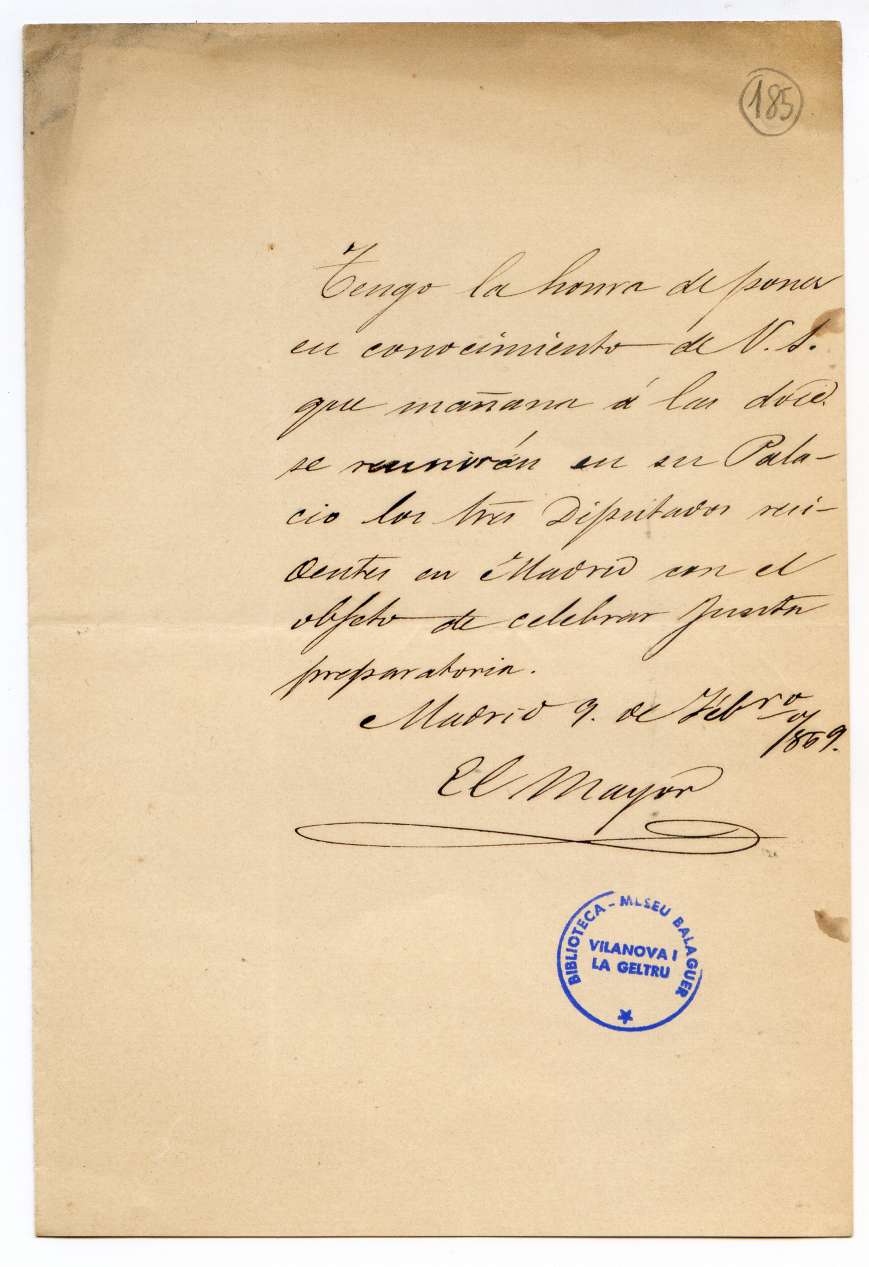 185
Tengo la honra de poner
en conocimiento de V. S.
que mañana á las doce
se reunirán en su Pala-
cio los tres Diputados resi-
dentes en Madrid con el
objeto de celebrar Junta
preparatoria.
Madrid 9. de Febro
/869.
El Mayor
BIBLIOTECA - MUSEU BALAGUER
VILANOVA I
LA GELTRU